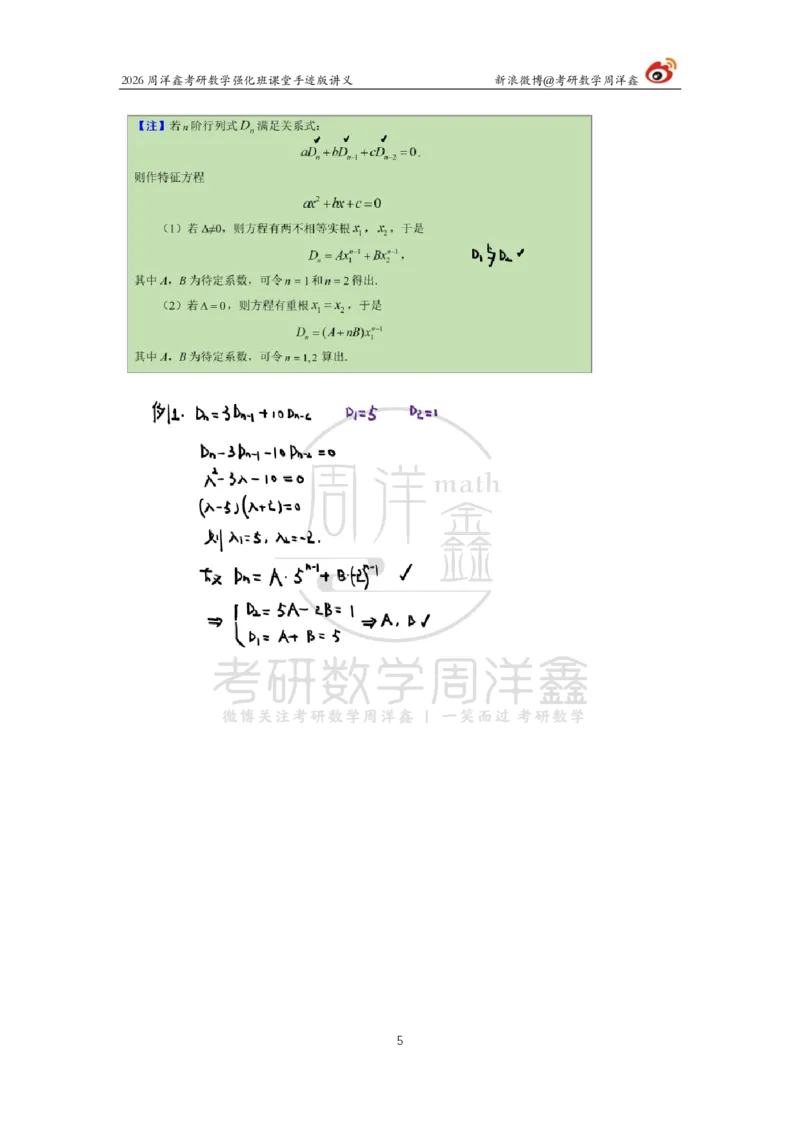 2026 周洋鑫考研数学强化班课堂手迹版讲义 新浪微博@考研数学周洋鑫
【注】若 n 阶行列式 Dₙ 满足关系式:
aDₙ + bDₙ₋₁ + cDₙ₋₂ = 0.
则作特征方程
ax² + bx + c = 0
(1) 若 Δ≠0, 则方程有两不相等实根 x₁, x₂, 于是
Dₙ = Ax₁ⁿ⁻¹ + Bx₂ⁿ⁻¹, D₁与D₂ ✓
其中 A, B 为待定系数, 可令 n = 1 和 n = 2 得出.
(2) 若 Δ = 0, 则方程有重根 x₁ = x₂, 于是
Dₙ = (A + nB)x₁ⁿ⁻¹
其中 A, B 为待定系数, 可令 n = 1,2 算出.
例1. Dₙ=3Dₙ₋₁+10Dₙ₋₂ D₁=5 D₂=1
Dₙ-3Dₙ₋₁-10Dₙ₋₂=0
λ²-3λ-10=0
(λ-5)(λ+2)=0
则 λ₁=5, λ₂=-2.
故 Dₙ= A·5ⁿ⁻¹+B·(-2)ⁿ⁻¹ ✓
⇒ { D₂= 5A-2B= 1 ⇒A, B✓
D₁= A+ B= 5
周洋鑫 math
考研数学周洋鑫
微博关注考研数学周洋鑫 | 一笑而过 考研数学
5